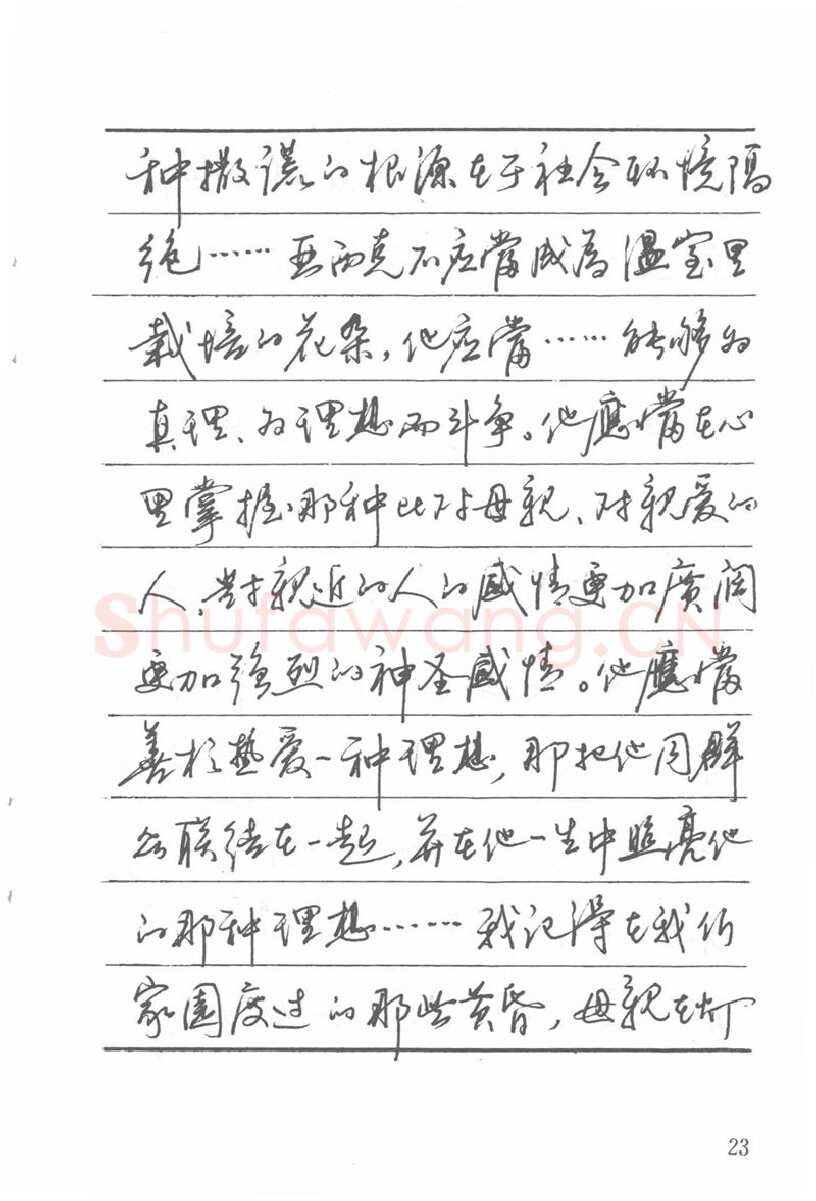 种撒谎的根源在于社会环境隔
绝……亚西克不应当成为温室里
栽培的花朵,他应当……能够为
真理、为理想而斗争。他應當在心
里掌握那种比对母親、对親爱的
人、對親近的人的感情更加廣阔
更加強烈的神圣感情。他應當
善于热爱一种理想,那把他同群
众联结在一起,并在他一生中照亮他
的那种理想……我记得在我们
家園度过的那些黄昏,母親在灯
Shufawang.CN
23